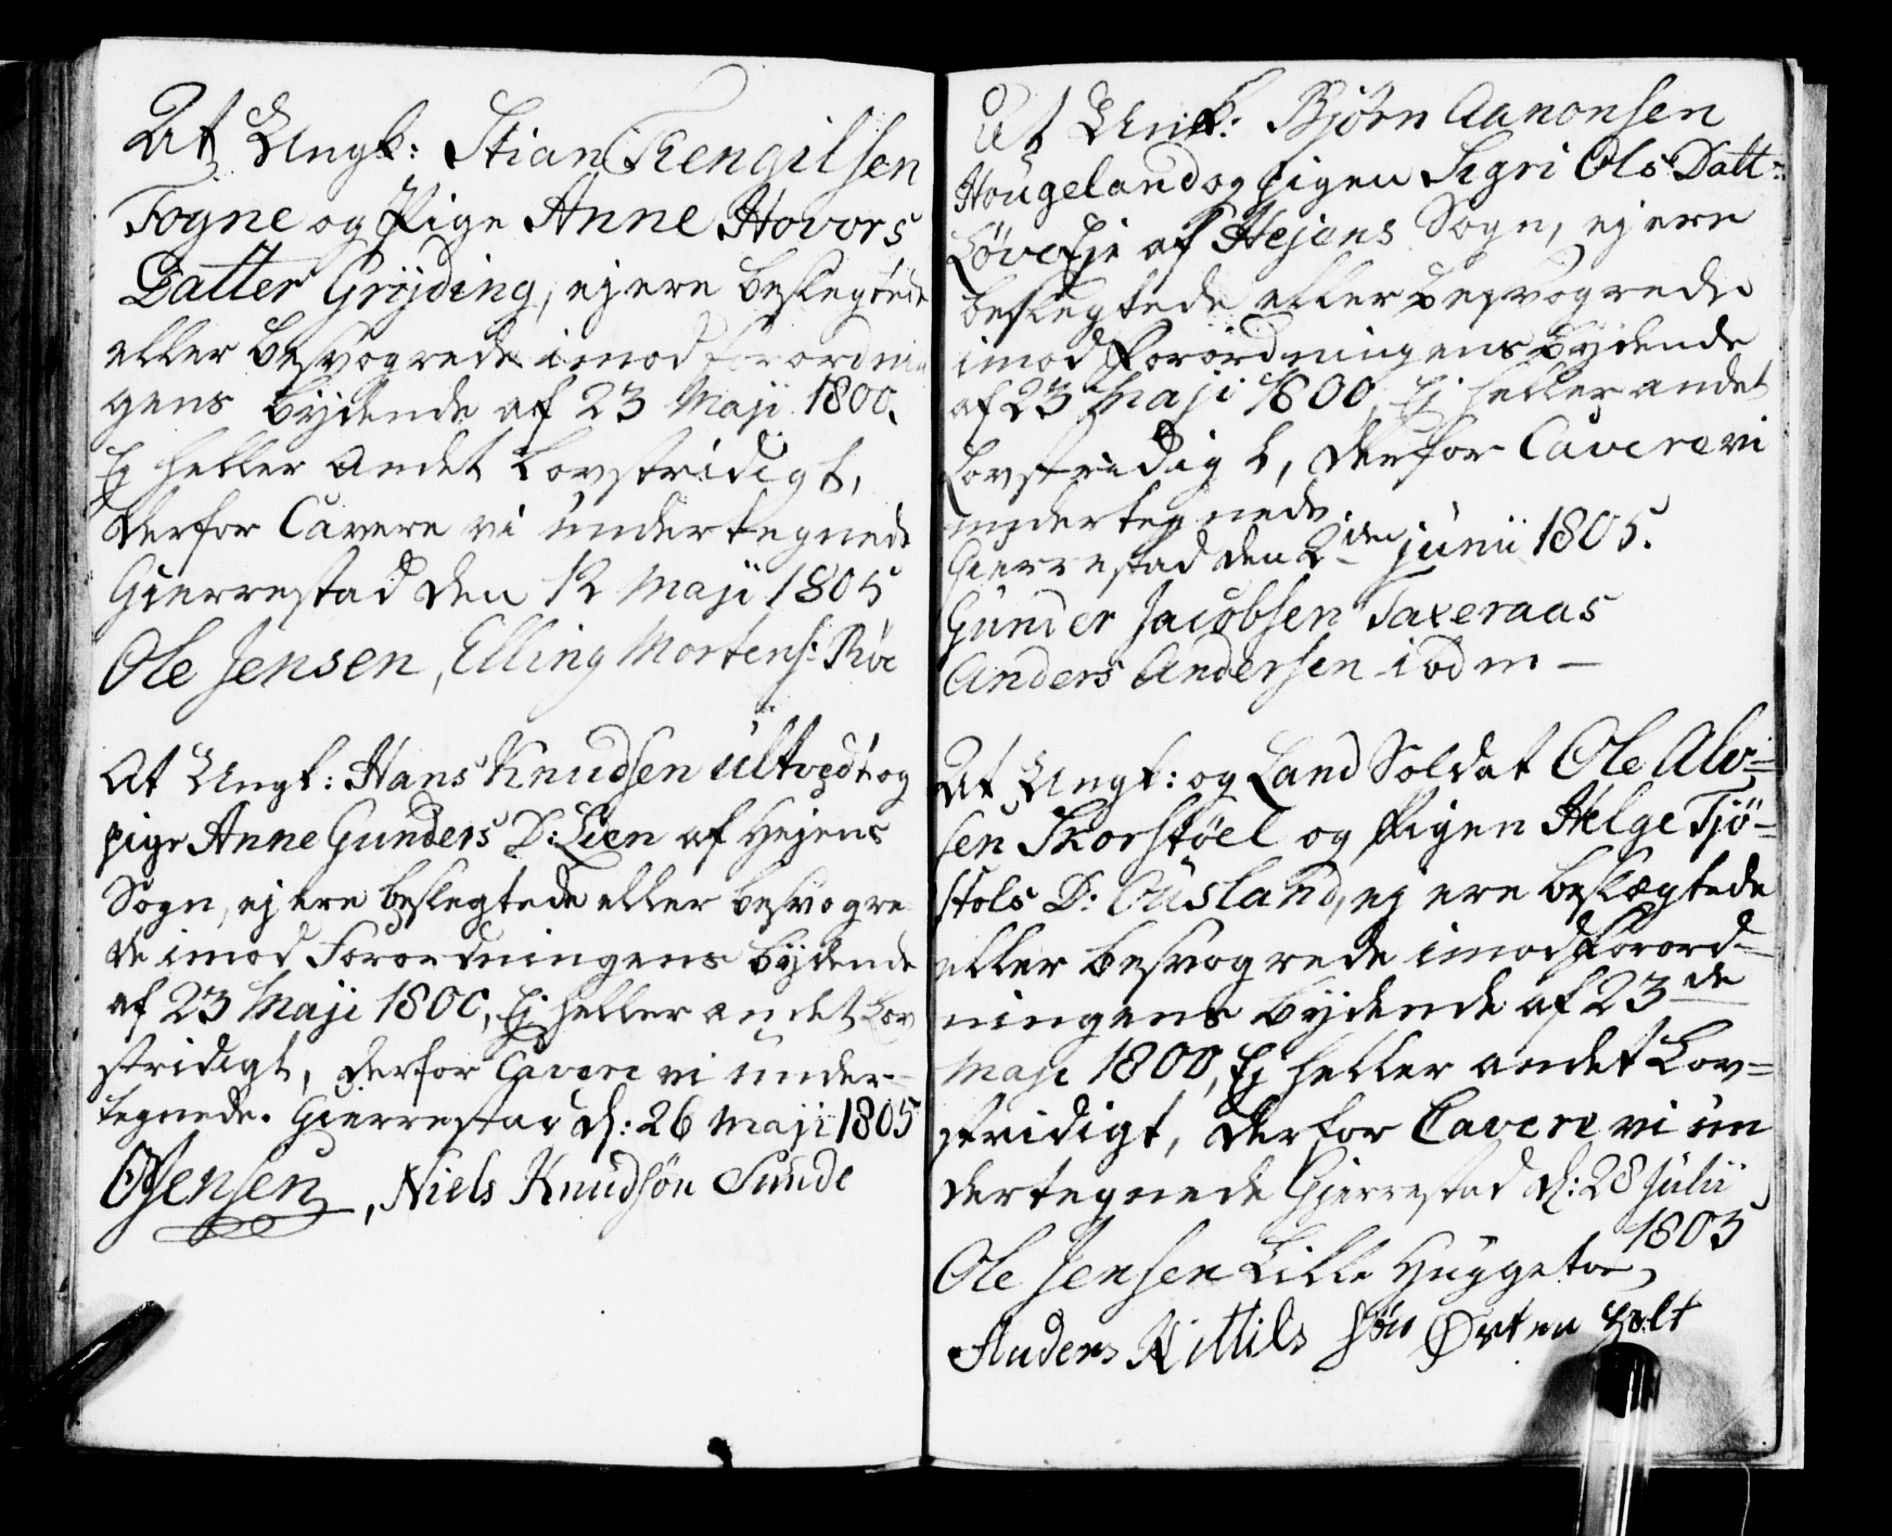 At Ungk: Stian Tengilsen
Fogne og Pige Anne Hovors
Datter Grÿding, ej ere beslegtede
eller besvogrede imod forordnin
gens bÿdende af 23 Maji 1800.
Ej heller Andet Lovstridigt,
derfor Cavere vi undertegnede
Gierrestad den 12 Maji 1805
Ole Jensen, Elling Mortens: Röe
At Ungk: Hans Knudsen Ultvedt og
pige Anne Gunders D: Lien af Hejens
Sogn, ej ere beslegtede eller besvogre
de imod Forordningens bÿdende
af 23 Maji 1800, Ej heller andet Lov
stridigt, derfor Cavere vi under-
tegnede. Gierrestad d: 26 Maji 1805
OJensen, Niels Knudsön Sunde
At Unk: Bjørn Aanonsen
Hougeland og pigen Segri Ols Datt:
Løveeje af Hejens Sogn, ej ere
beslegtede eller besvogrede
imod Forordningens bÿdende
af 23 Maji 1800, Ej heller andet
Lovstridigt, derfor Cavere vi
undertegnede.
Gierrestad den 2den junii 1805.
Gunder Jacobsen Taxeraas
Anders Andersen iodm –
At Ungk: og Land Soldat Ole Alv=
sen Skorstöel og Pigen Helge Tjö=
stols D: Ousland, ej ere beslægtede
eller besvogrede imod Forord-
ningens bÿdende af 23de
Maji 1800, Ej heller andet Lov=
stridigt, derfor Cavere vi un
dertegnede Gjerrestad d: 28 Julii
1805
Ole Jensen Lille Huggetoe,
Anders Kittils sön Ørten holt